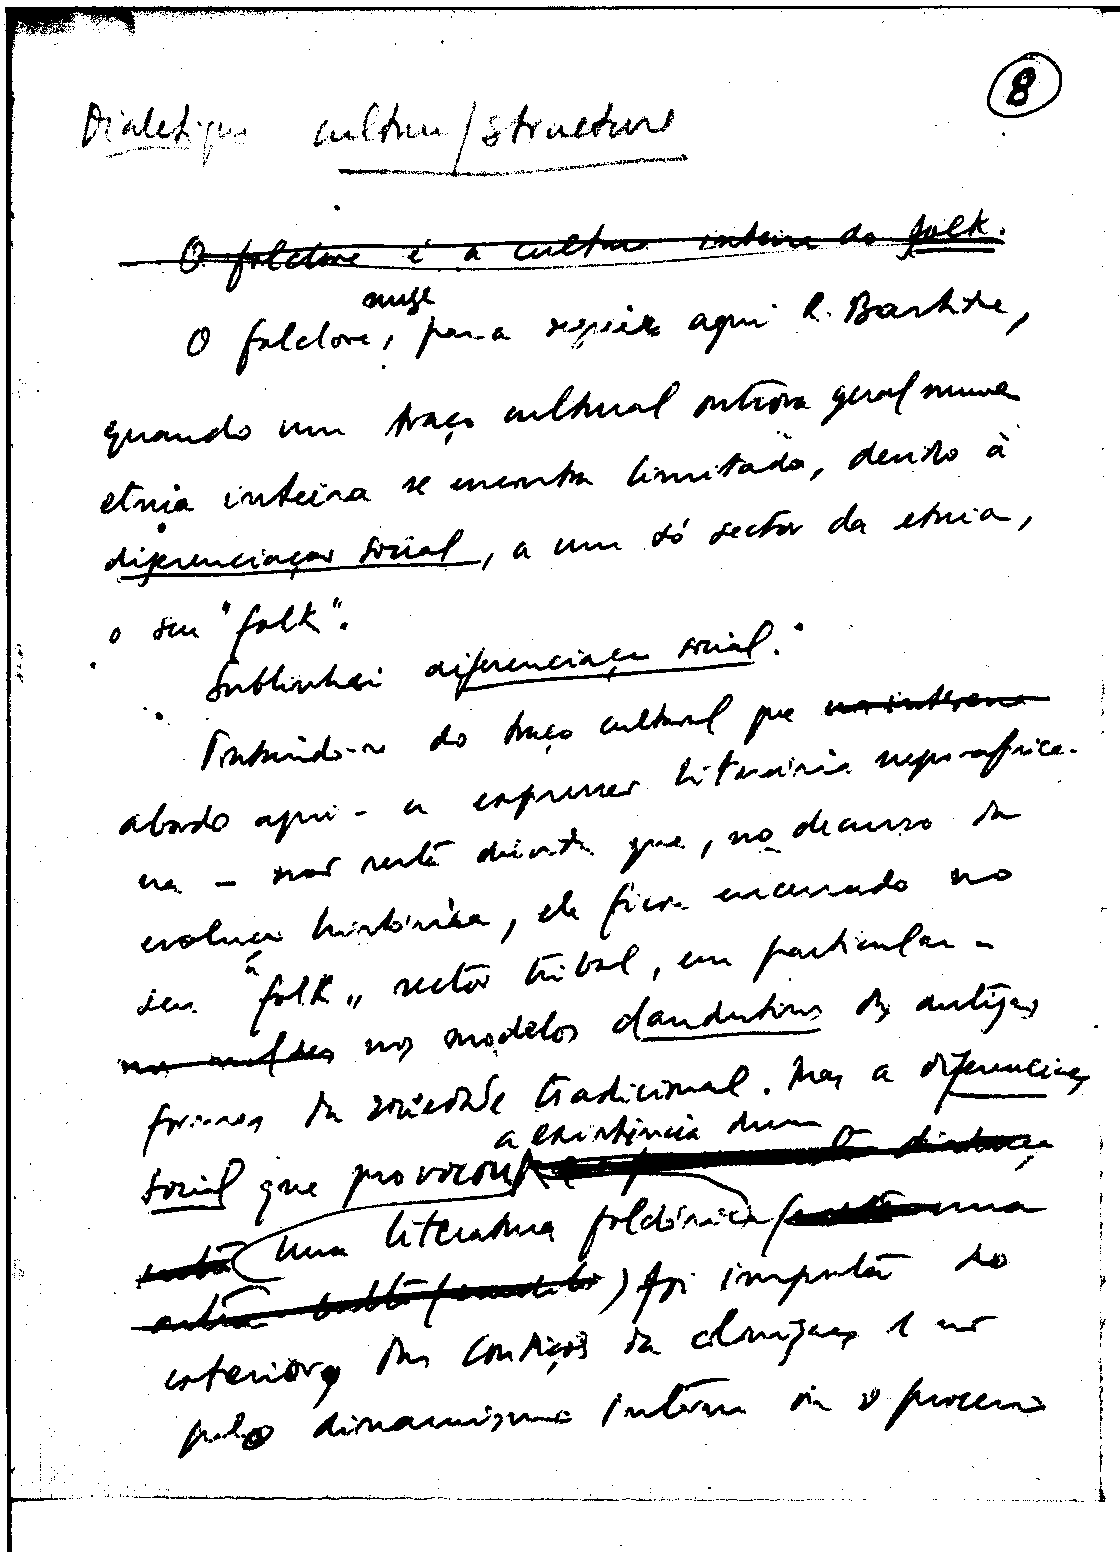 8
Dialetique culture/structure
O folclore é a cultura inteira do folk.
surge
O folclore, para seguir aqui R. Bastide,
quando um traço cultural outrora geral numa
etnia inteira se encontra limitado, devido à
diferenciação social, a um só sector da etnia,
o seu "folk".
Sublinhei diferenciação social.
Tratando-se do traço cultural que
abordo aqui - a expressão literária negro-africa-
na - não resta dúvida que, no decurso da
evolução histórica, ele ficou encerrado no
seu "folk", sector tribal, em particular -
nos moldes nos modelos clandestinos das antigas
formas da sociedade tradicional. Mas a diferenciação
a existência duma
social que provocou
uma literatura folclórica uma
) foi imposta do
exterior, das condições da colonização e não
pelo dinamismo interno do processo